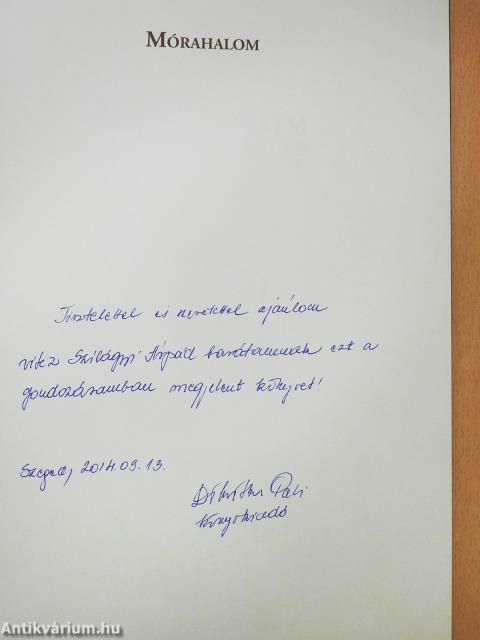 MÓRAHALOM
Tisztelettel és szeretettel ajánlom
vitéz Szilágyi Árpád barátomnak ezt a
gondozásomban megjelent könyvet!
Szeged, 2014.09.13.
könyvkiadó
Antikvárium.hu